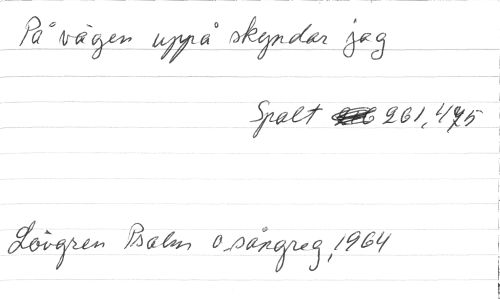 På vägen uppå skyndar jag
Spalt 261, 475
Lövgren Psalm o. sångreg, 1964